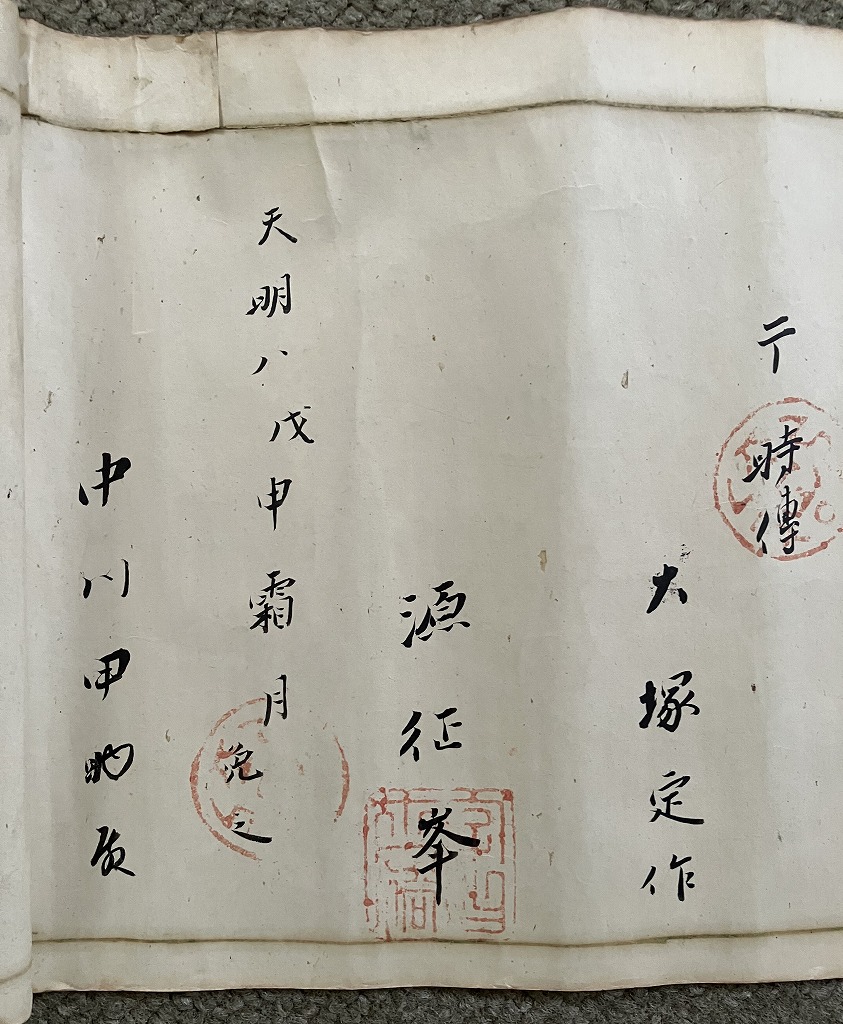 于時傳
大塚定作
源征峯
天明八戊申霜月
免之
中川甲助殿